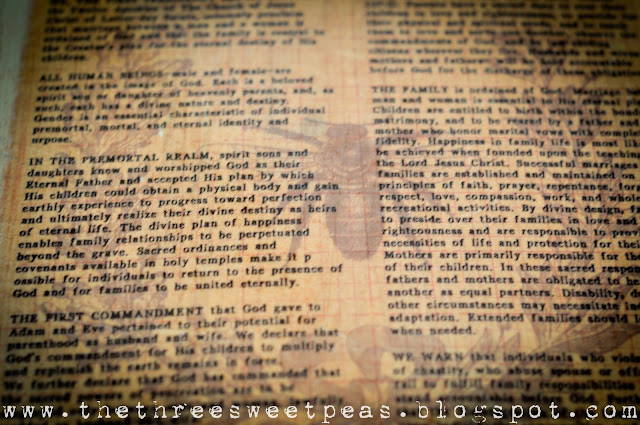 that marriage
ordained of God and that the family is central to
the Creator's plan for the eternal destiny of His
children.
ALL HUMAN BEINGS—male and female—are
created in the image of God. Each is a beloved
spirit son or daughter of heavenly parents, and, as
such, each has a divine nature and destiny.
Gender is an essential characteristic of individual
premortal, mortal, and eternal identity and
urpose.
IN THE PREMORTAL REALM, spirit sons and
daughters knew and worshipped God as their
Eternal Father and accepted His plan by which
His children could obtain a physical body and gain
earthly experience to progress toward perfection
and ultimately realize their divine destiny as heirs
of eternal life. The divine plan of happiness
enables family relationships to be perpetuated
beyond the grave. Sacred ordinances and
covenants available in holy temples make it p
ossible for individuals to return to the presence of
God and for families to be united eternally.
THE FIRST COMMANDMENT that God gave to
Adam and Eve pertained to their potential for
parenthood as husband and wife. We declare that
God's commandment for His children to multiply
and replenish the earth remains in force.
We further declare that God has commanded that
are to be
mothers and fathers—will be held
before God for the discharge of these obligations
THE FAMILY is ordained of God. Marriage
man and woman is essential to His eternal pl
Children are entitled to birth within the bond
matrimony, and to be reared by a father and
mother who honor marital vows with comple
fidelity. Happiness in family life is most like
be achieved when founded upon the teachin
the Lord Jesus Christ. Successful marriages
families are established and maintained on
principles of faith, prayer, repentance, for
respect, love, compassion, work, and whole
recreational activities. By divine design, f
to preside over their families in love and
righteousness and are responsible to provi
necessities of life and protection for thei
Mothers are primarily responsible for the
of their children. In these sacred respon
fathers and mothers are obligated to he
another as equal partners. Disability, d
other circumstances may necessitate ind
adaptation. Extended families should l
when needed.
WE WARN that individuals who viol
of chastity, who abuse spouse or off
fail to fulfill family responsibilities
www.thethreesweetpeas.blogspot.com